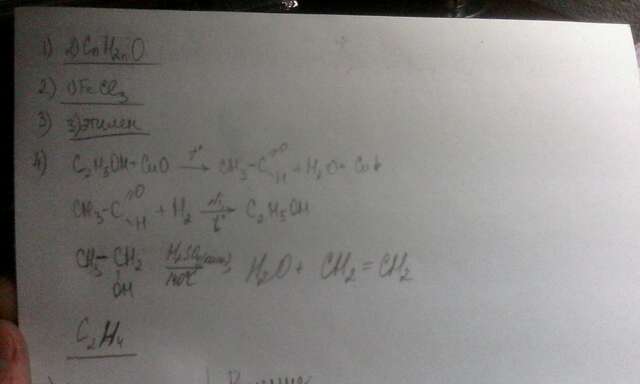 1) 2) CnH2nO
2) 1) FeCl3
3) 3) этилен
4) C2H5OH + CuO t° → CH3-C =O H + H2O + Cu↓
CH3-C =O H + H2 Ni t° → C2H5OH
CH3-CH2 OH H2SO4(конц) 140°C H2O + CH2=CH2
C2H4